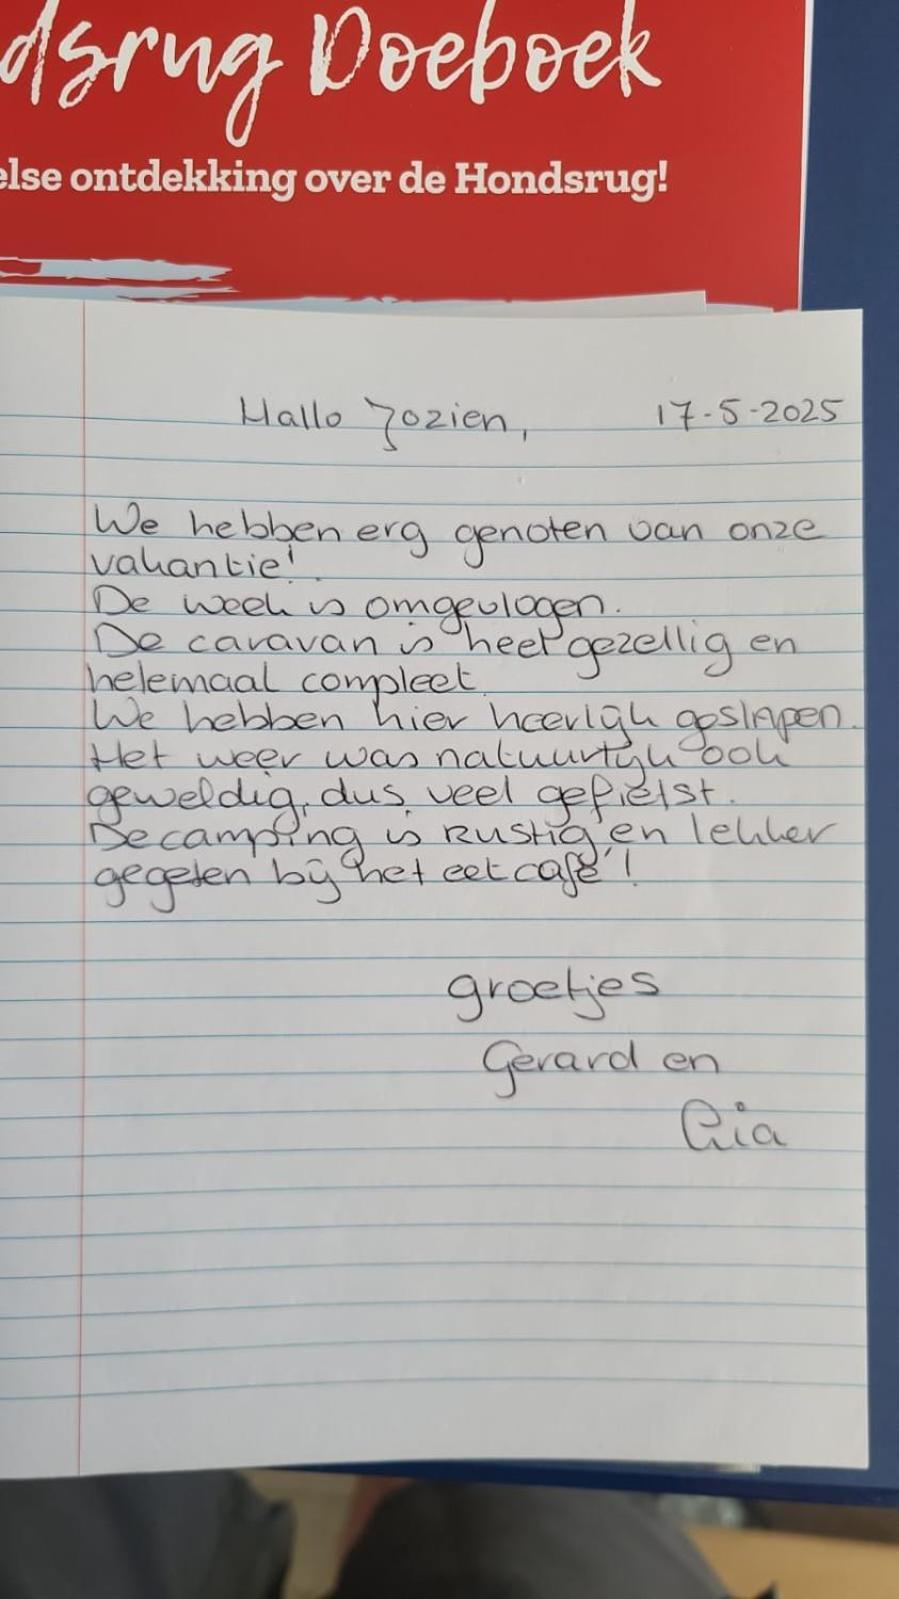 dsrug Doeboek
else ontdekking over de Hondsrug!
Hallo Jozien, 17-5-2025
We hebben erg genoten van onze
vakantie!
De week is omgevlogen.
De caravan is heel gezellig en
helemaal compleet.
We hebben hier heerlijk geslapen.
Het weer was natuurlijk ook
geweldig, dus veel gefietst.
De camping is Rustig en lekker
gegeten bij het eetcafé!
groetjes
Gerard en
Ria